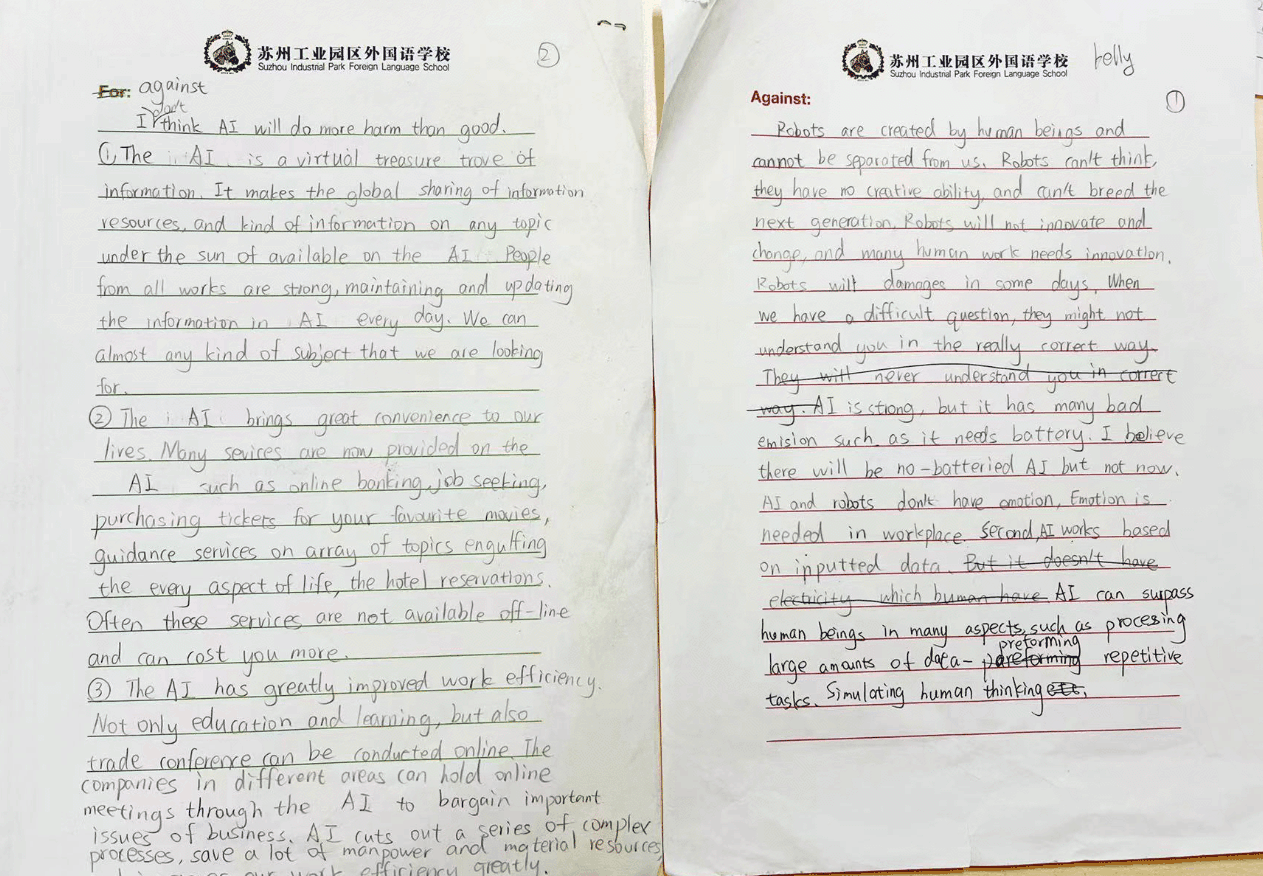 苏州工业园区外国语学校
Suzhou Industrial Park Foreign Language School
②
For: against
don't
I think AI will do more harm than good.
①, The AI is a virtual treasure trove of
information. It makes the global sharing of information
resources, and kind of information on any topic
under the sun of available on the AI People
from all works are strong, maintaining and updating
the information in AI every day. We can
almost any kind of subject that we are looking
for.
② The AI brings great convenience to our
lives. Many sevices are now provided on the
AI such as online banking, job seeking,
purchasing tickets for your favourite movies,
guidance services on array of topics engulfing
the every aspect of life, the hotel reservations.
Often these services are not available off-line
and can cost you more.
③ The AI has greatly improved work efficiency.
Not only education and learning, but also
trade conference can be conducted online. The
companies in different areas can hold online
meetings through the AI to bargain important
issues of business. AI cuts out a series of complex
processes, save a lot of manpower and material resources,
our work efficiency greatly.
苏州工业园区外国语学校
Suzhou Industrial Park Foreign Language School
kelly
Against:
①
Robots are created by human beings and
cannot be separated from us. Robots can't think,
they have no creative ability, and can't breed the
next generation. Robots will not innovate and
change, and many human work needs innovation.
Robots will damages in some days. When
we have a difficult question, they might not
understand you in the really correct way.
They will never understand you in correct
way. AI is strong, but it has many bad
emision such as it needs battery. I believe
there will be no-batteried AI but not now.
AI and robots don't have emotion, Emotion is
needed in workplace. Second, AI works based
on inputted data. But it doesn't have
electricity which human have. AI can surpass
human beings in many aspects, such as procesing
preforming
large amounts of data- repetitive
tasks. Simulating human thinking etc.